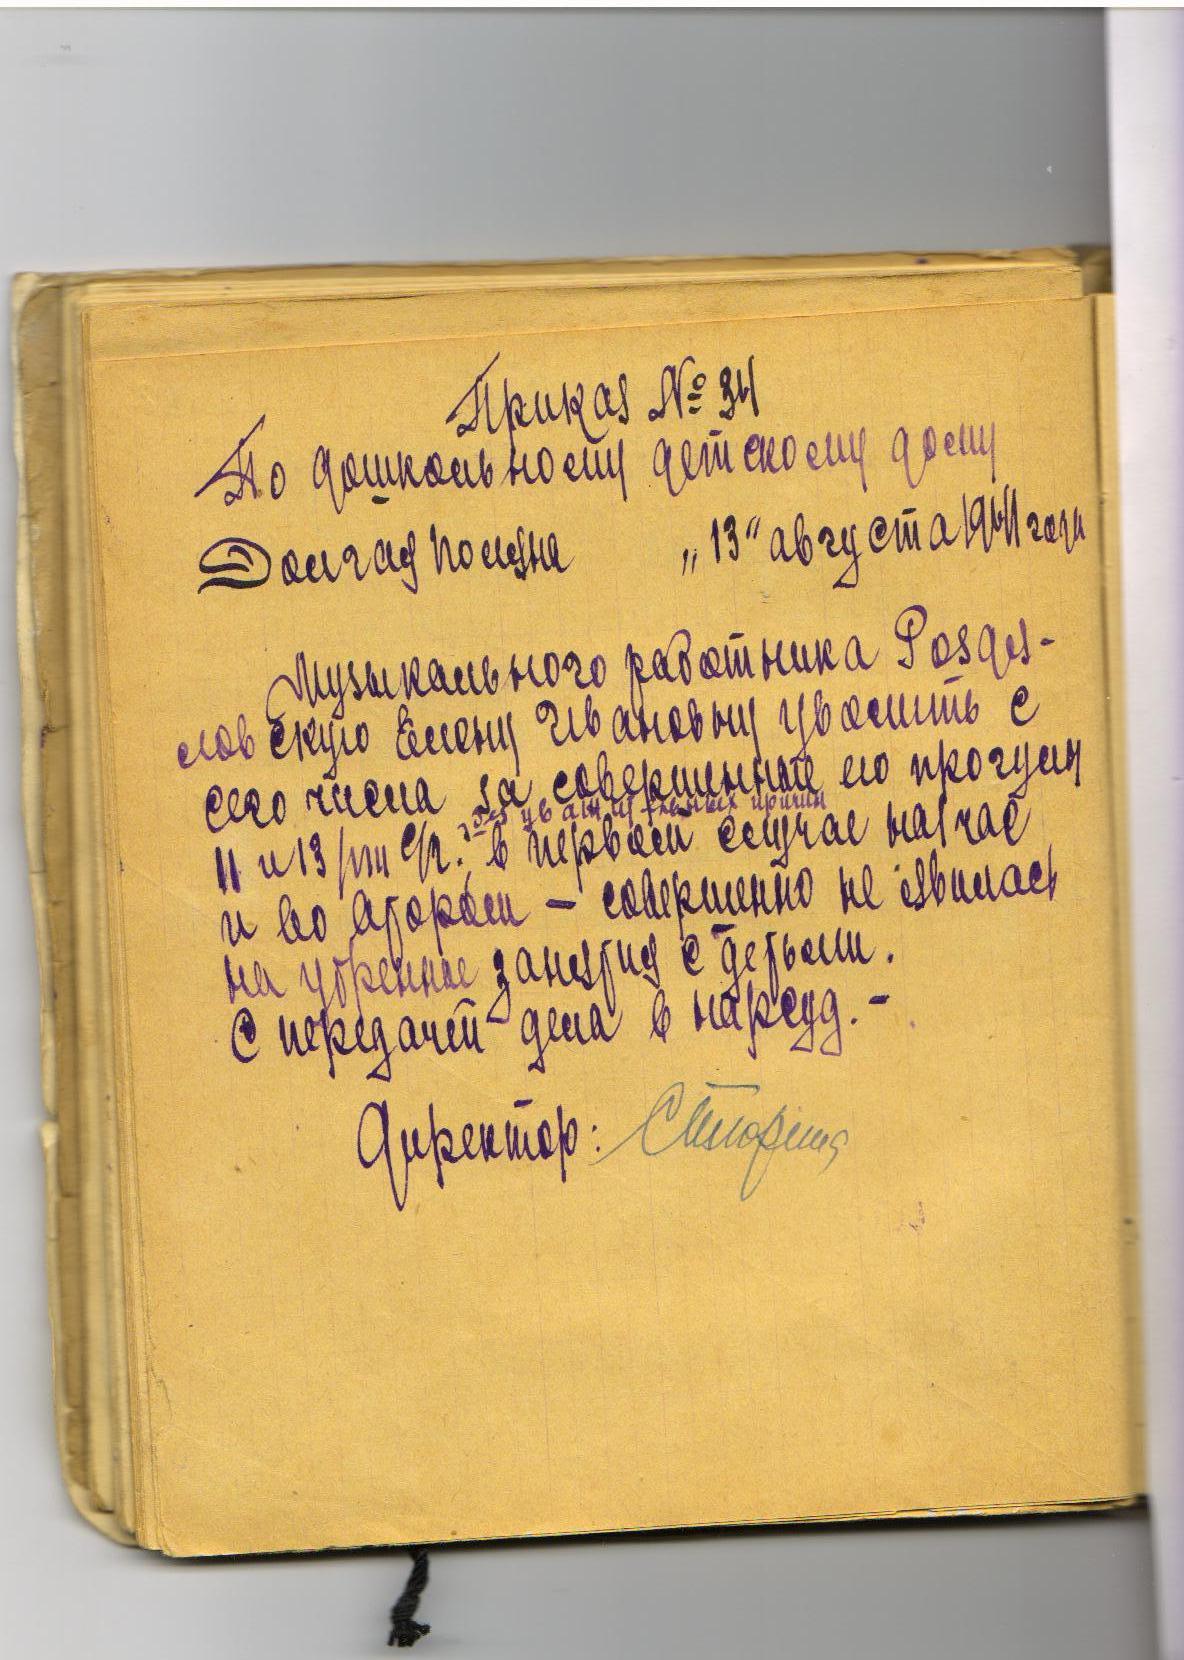 Приказ № 34
По дошкольному детскому дому
Долгая поляна „13“ августа 1941 года
Музыкального работника Роздес-
ловскую Елену Ивановну уволить с
сего числа за совершенные ею прогулы
без уважительных причин
11 и 13/VIII с/г. в первом случае на 1 час
и во втором — совершенно не явилась
на утренные занятия с детьми.
С передачей дела в нарсуд. –
Директор: